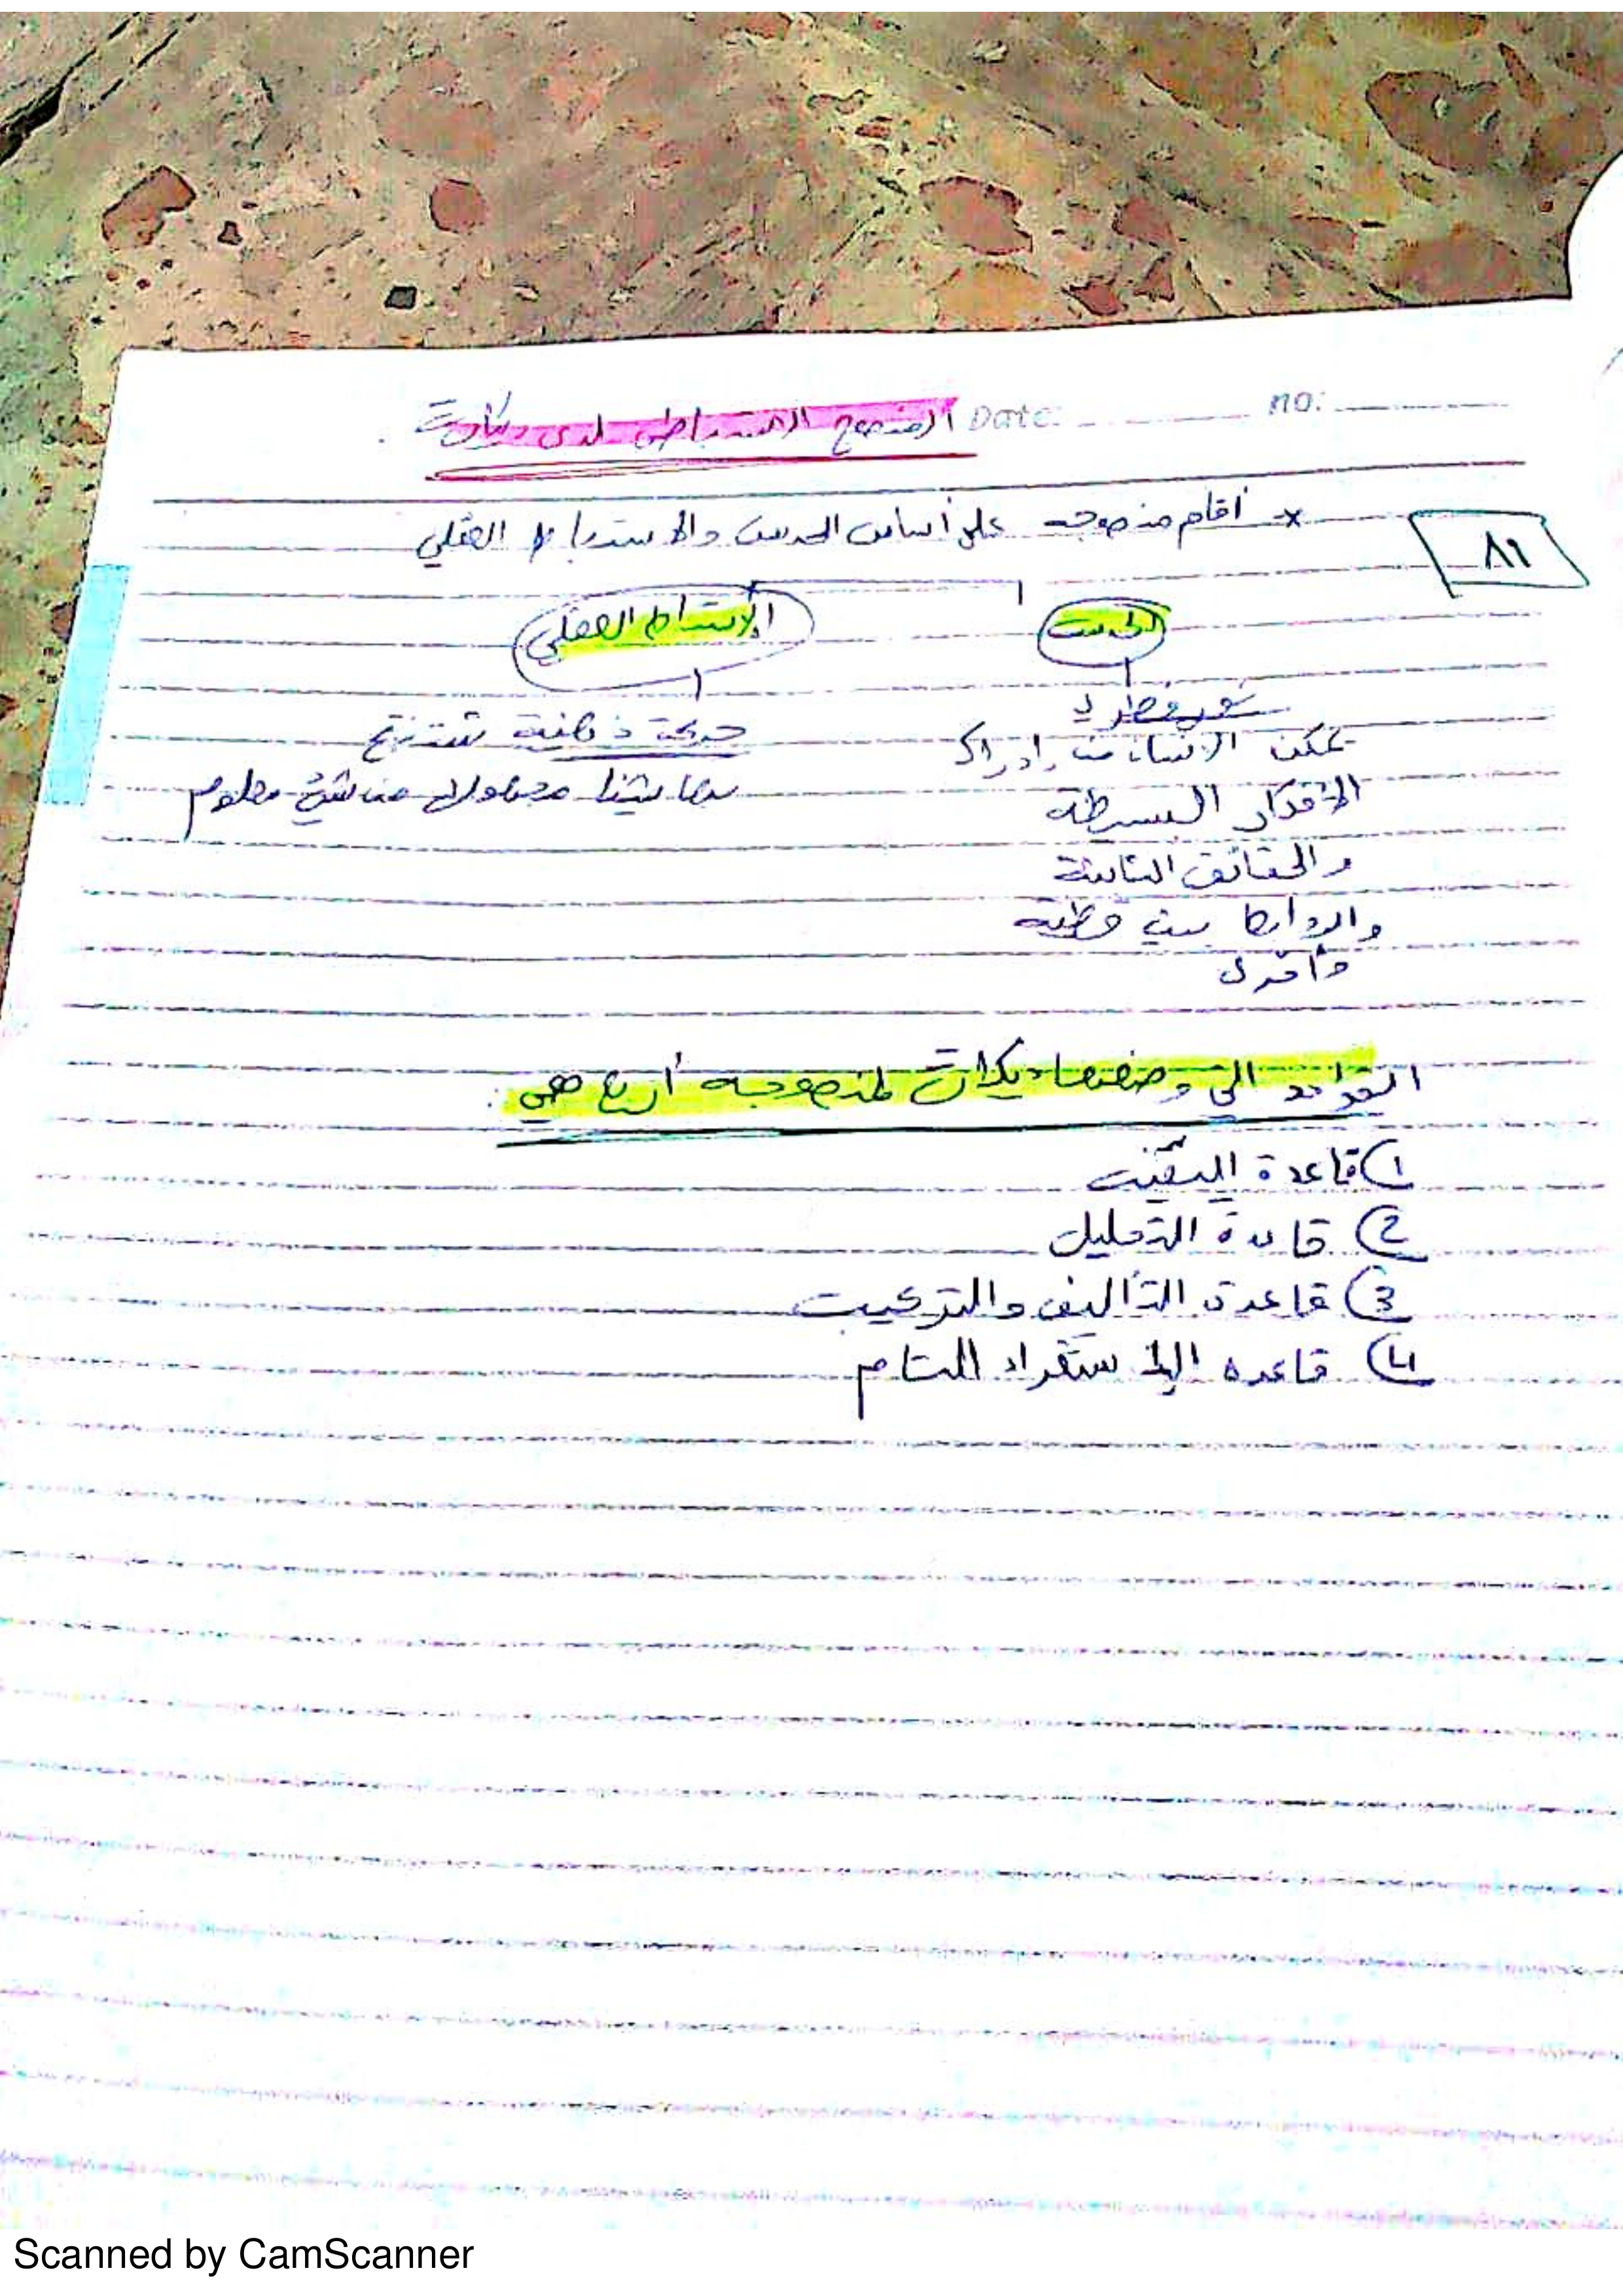 no: Date: المنهج الاستنباطي لدى ديكارت
* أقام منهجه على أساس الحدس والاستنباط العقلي
٨٦
الحدس
الاستنباط العقلي
نور فطري
يمكن الانسان من إدراك
الأفكار البسيطة
والحقائق الثابتة
والروابط بين قضية
وأخرى
حركة ذهنية نستنتج
بها شيئا مجهولا من شئ معلوم
القواعد التي وضعها ديكارت لمنهجه أربع هي:
1) قاعدة اليقين
2) قاعدة التحليل
3) قاعدة التأليف والتركيب
4) قاعده الاستقراء التام
Scanned by CamScanner